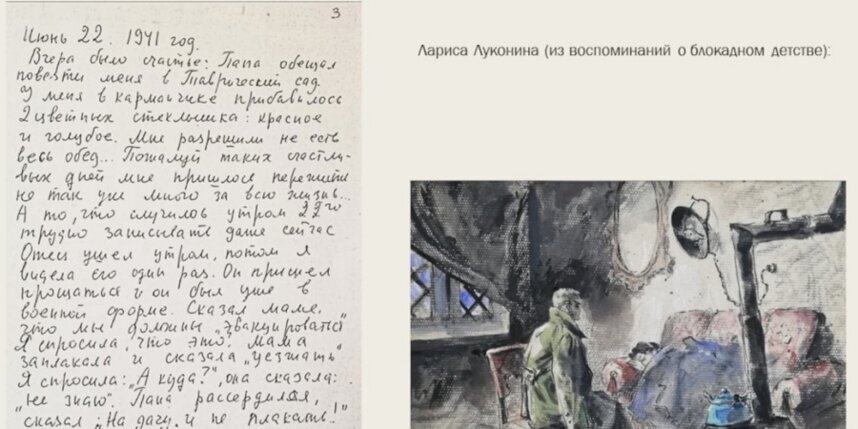 3
Июнь 22. 1941 год.
Вчера было счастье: Папа обещал
повезти меня в Таврический сад.
У меня в карманчике прибавилось
2 цветных стеклышка: красное
и голубое. Мне разрешили не есть
весь обед... Пожалуй таких счастли-
вых дней мне пришлось пережить
не так уже много за всю жизнь...
А то, что случилось утром 22го
трудно записывать даже сейчас
Отец ушел утром, потом я
видела его один раз. Он пришел
прощаться и он был уже в
военной форме. Сказал маме,
что мы должны "эвакуироваться
Я спросила, что это? Мама
заплакала и сказала "уезжать"
Я спросила: "А куда?", она сказала:
"не знаю". Папа рассердился,
сказал: "На дачу, и не плакать!"
Лариса Луконина (из воспоминаний о блокадном детстве):